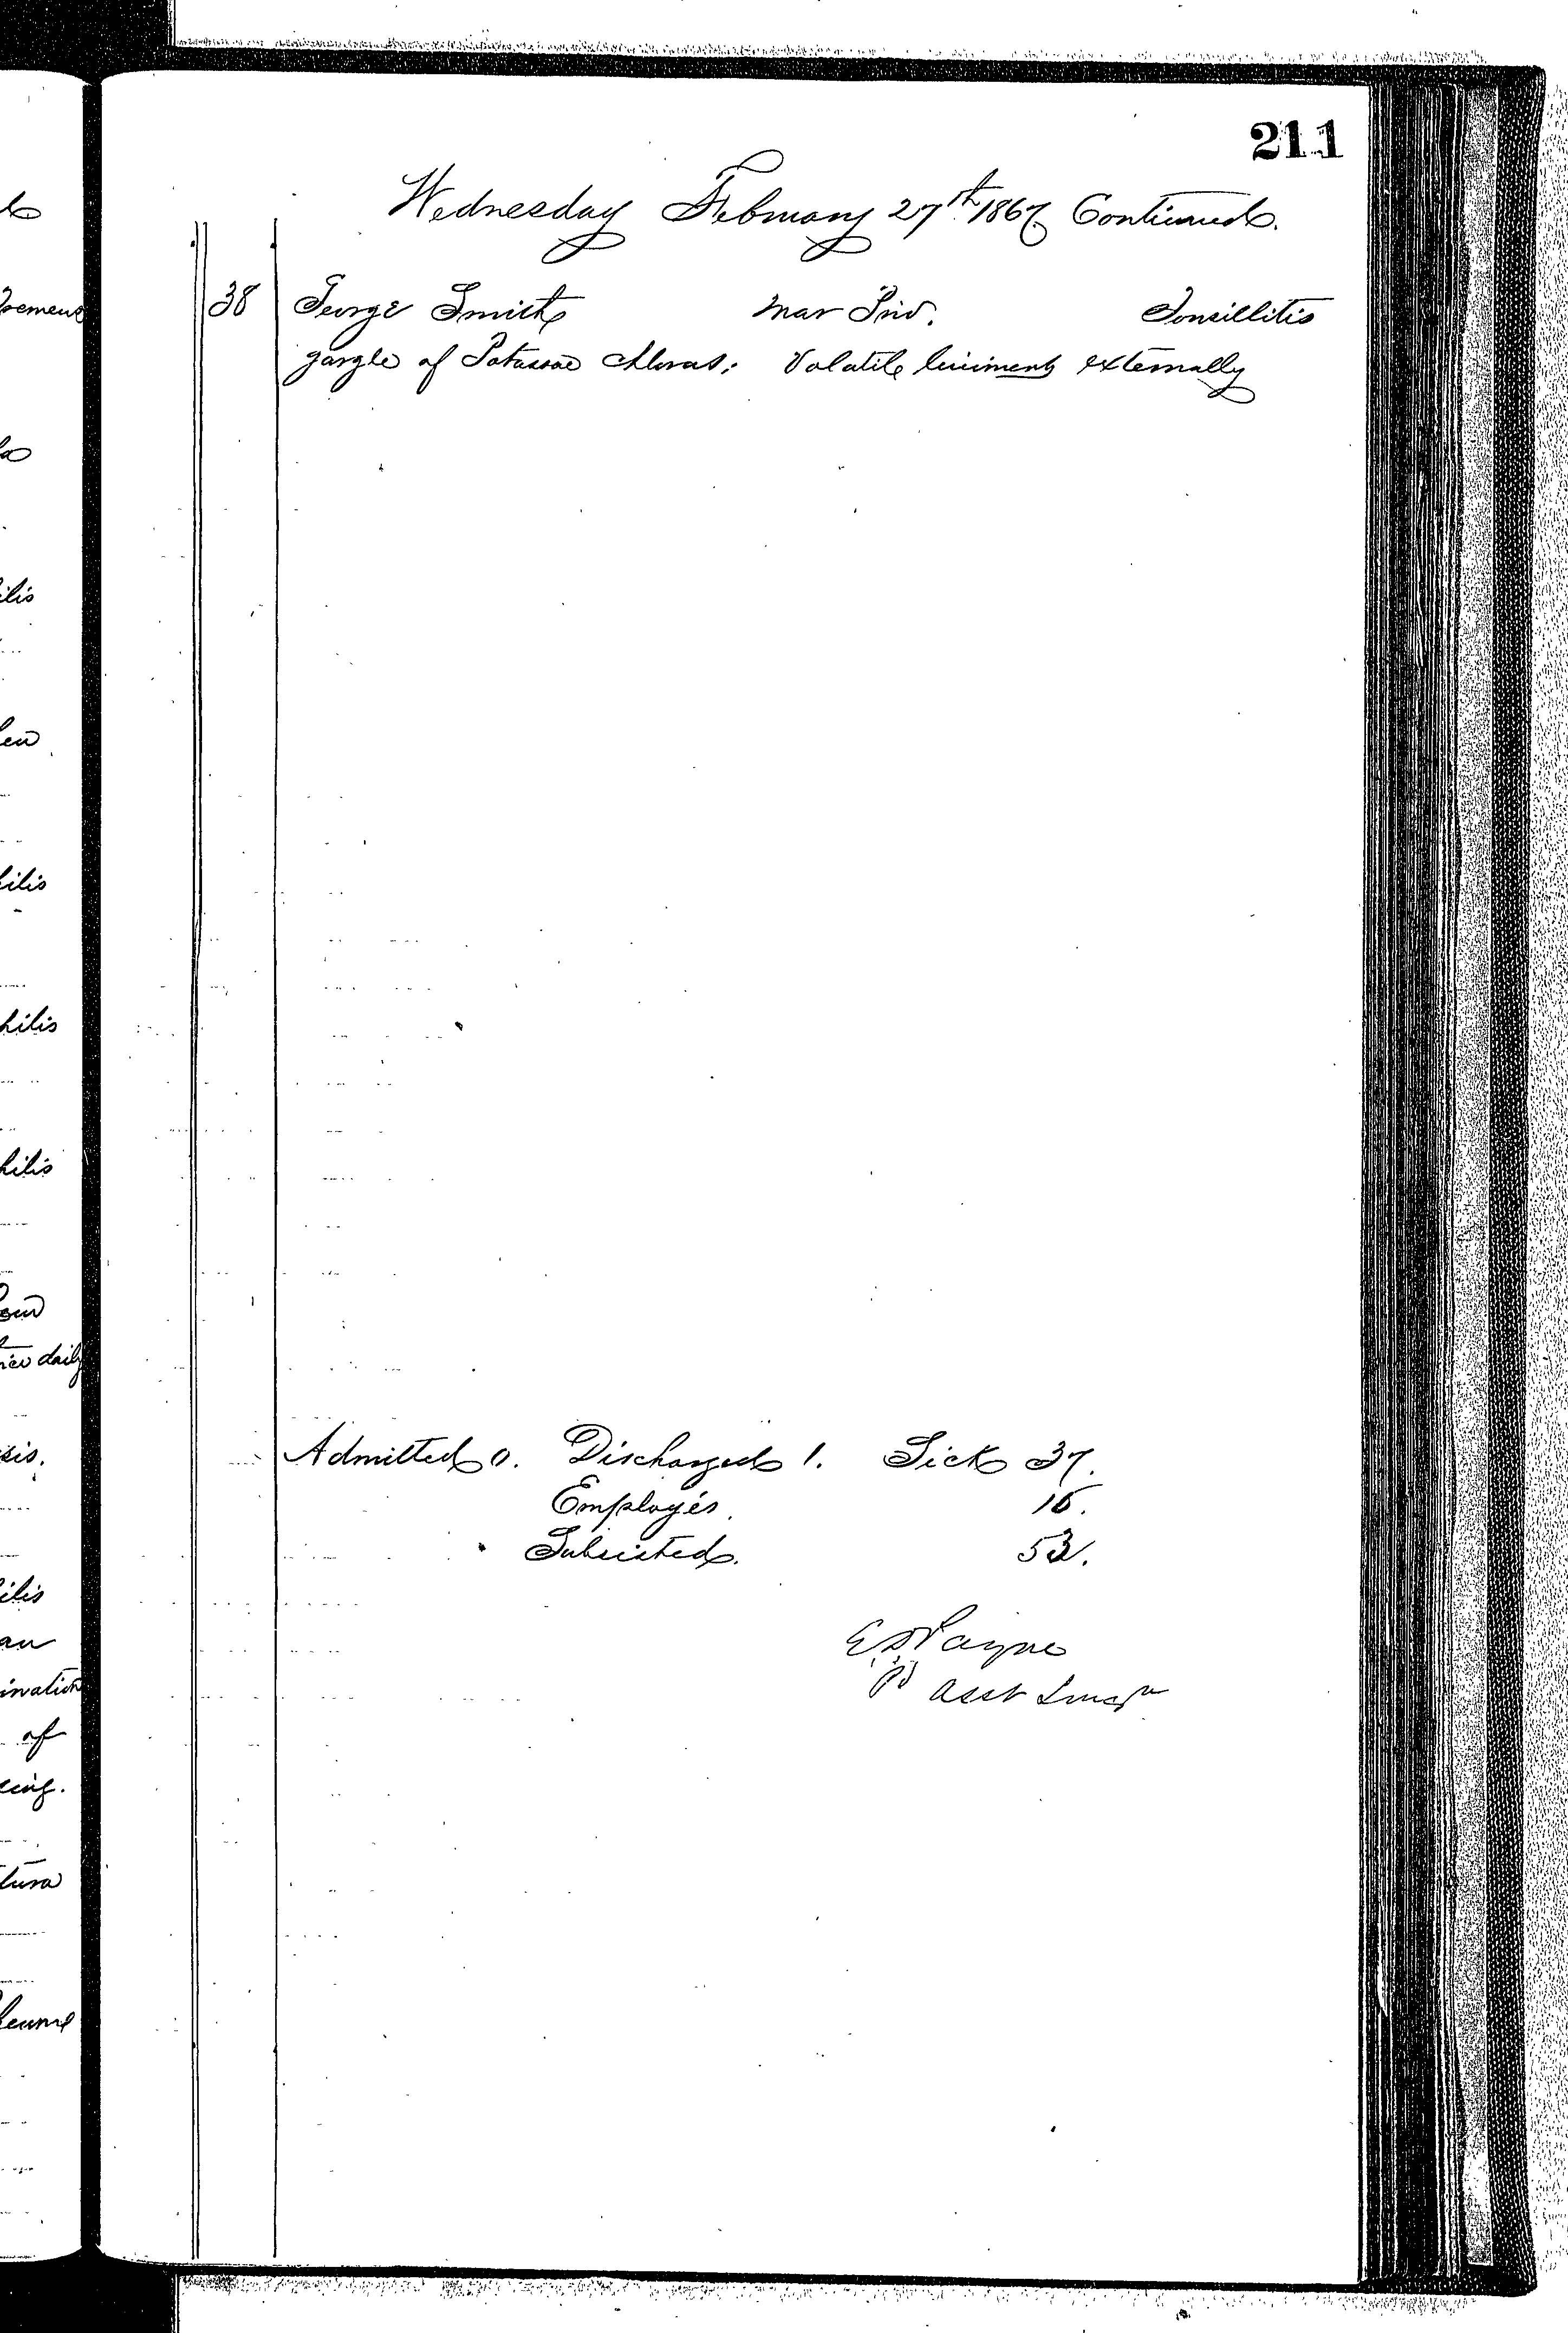 211
Wednesday February 27th 1867. Continued.
38 George Smith Mar Priv. Tonsillitis
gargle of Potassae Chloras; Volatile liniment externally
Admitted 0. Discharged 1. Sick 37.
Employés. 16.
Subsisted. 53.
E S Payne
Pd Asst Surgn
ilis
eu
hilis
hilis
hilis
daily
sis.
ilis
au
ination
of
ting.
tura